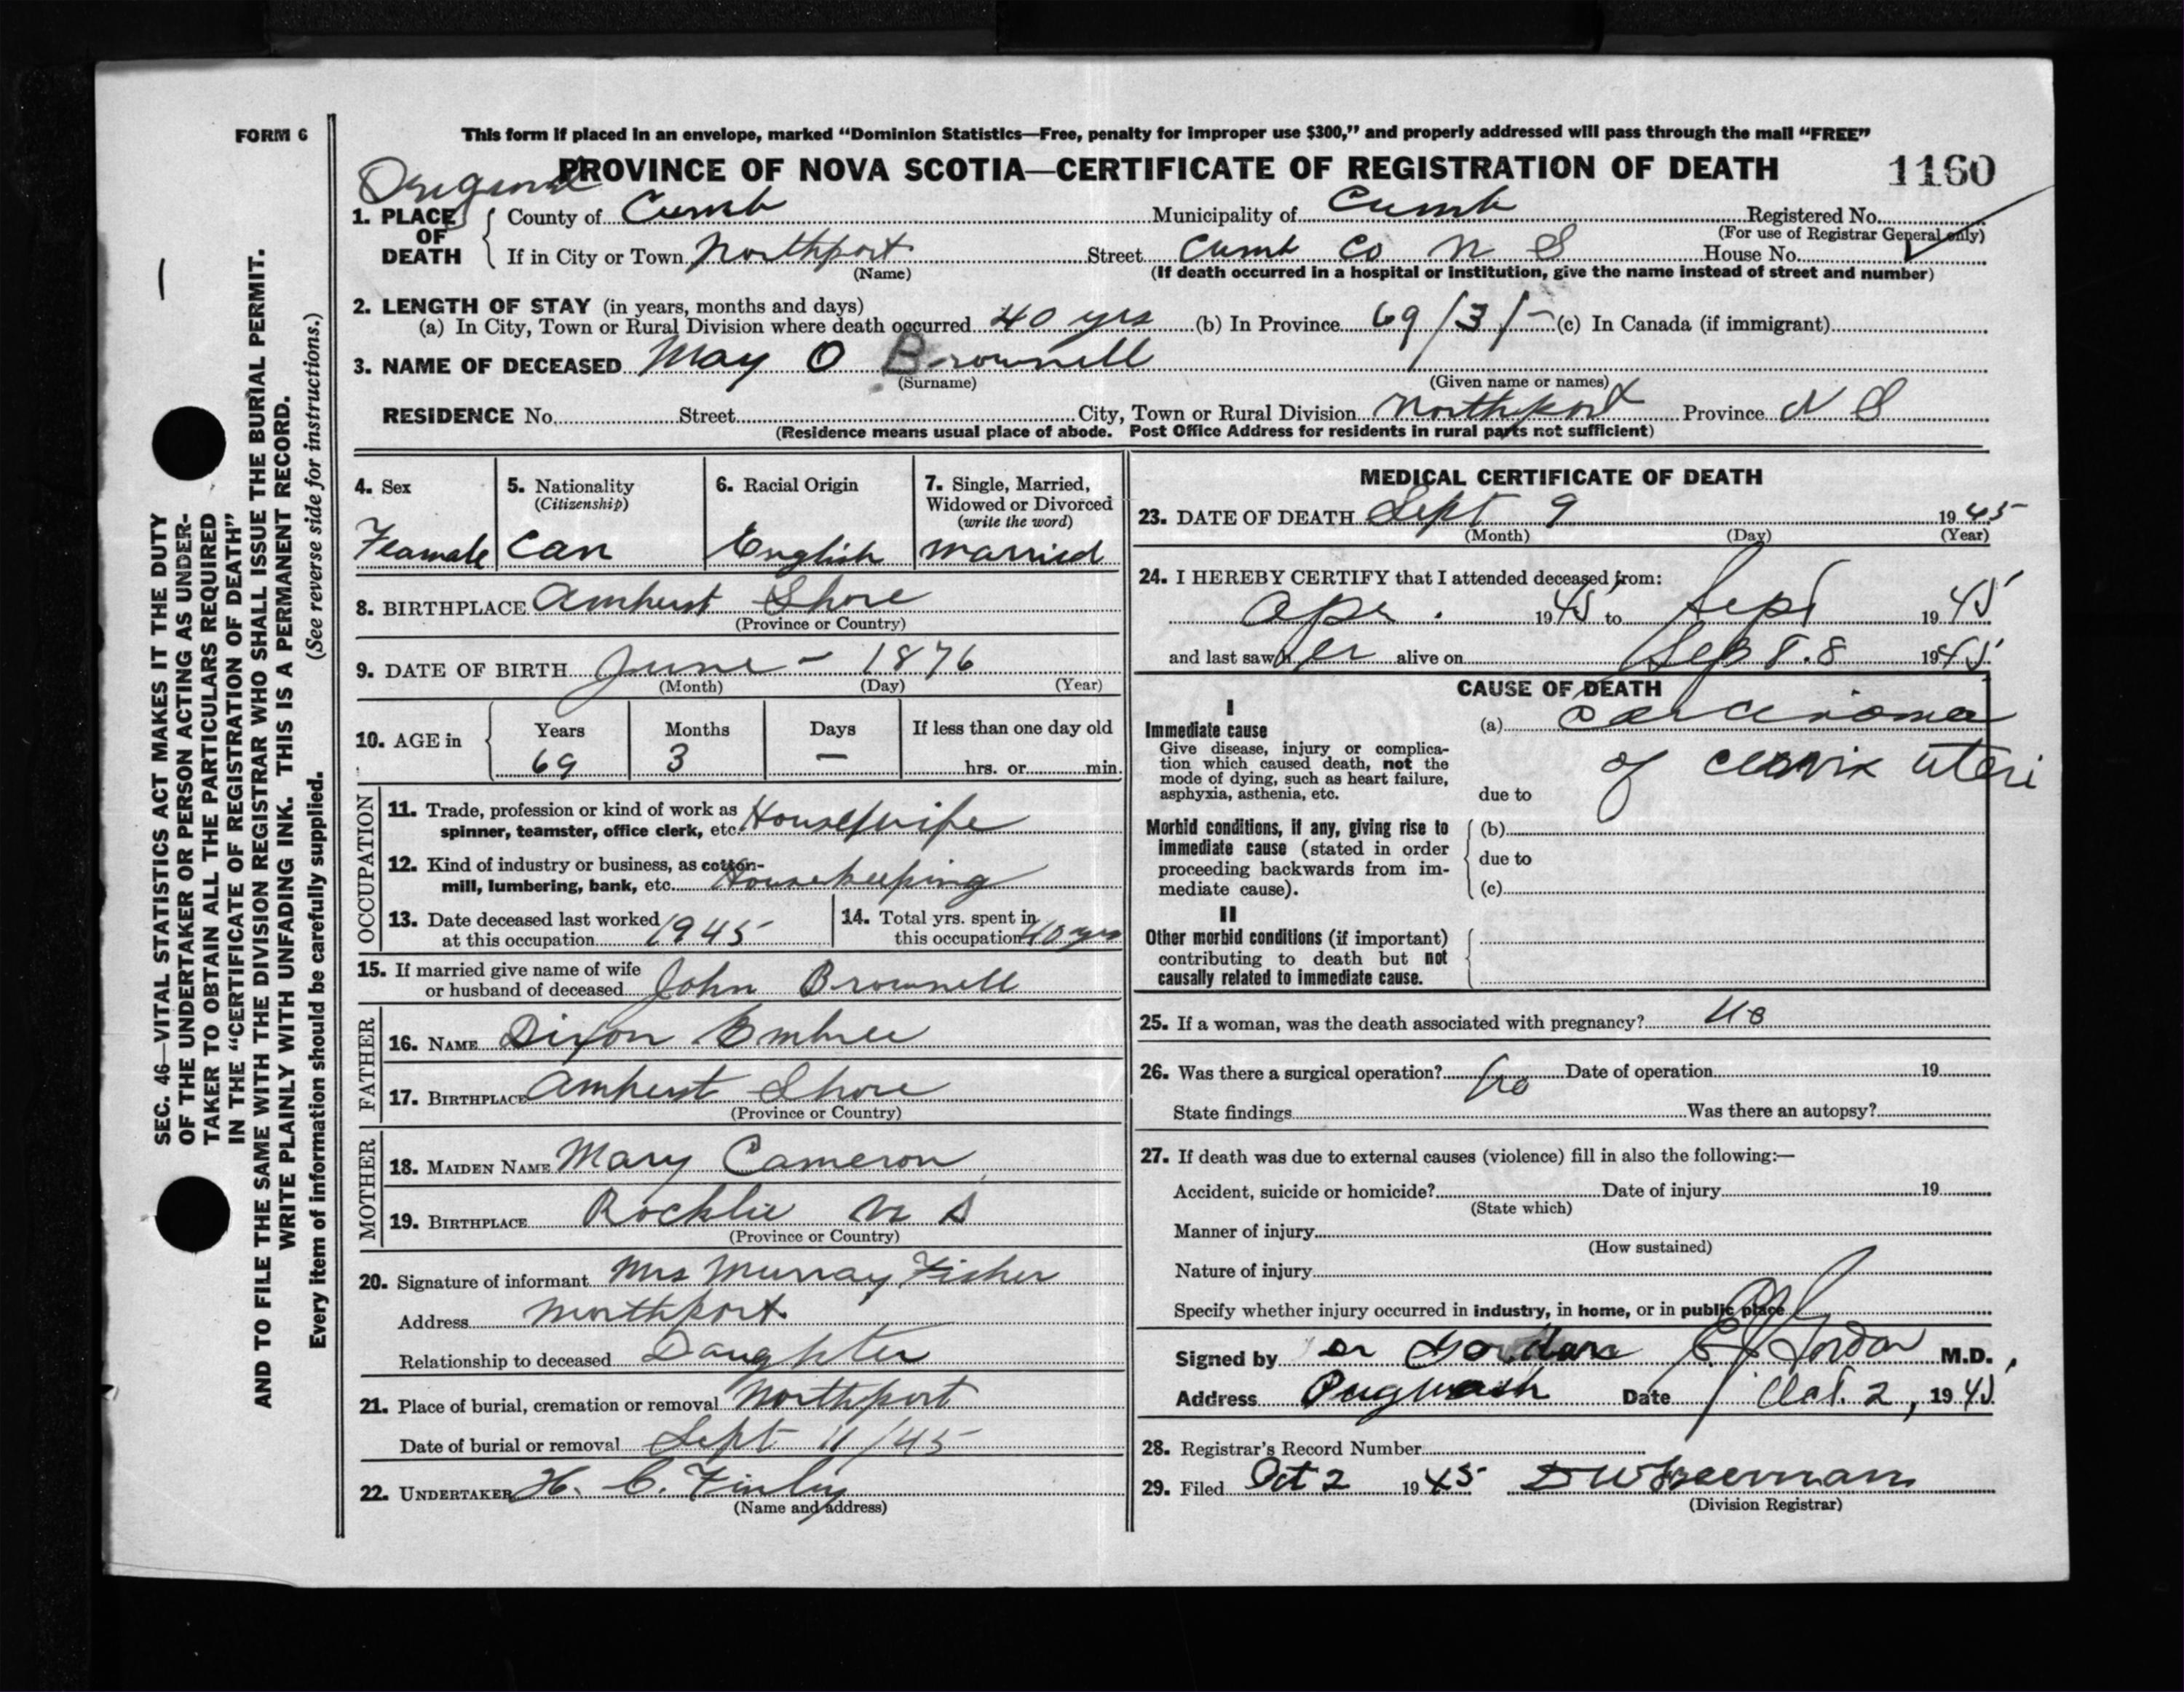 FORM 6
This form if placed in an envelope, marked “Dominion Statistics—Free, penalty for improper use $300,” and properly addressed will pass through the mail “FREE”
Original
PROVINCE OF NOVA SCOTIA—CERTIFICATE OF REGISTRATION OF DEATH 1160
1. PLACE OF DEATH { County of Cumb Municipality of Cumb Registered No.
(For use of Registrar General only)
If in City or Town Northport Street Cumb Co N S House No.
(Name) (If death occurred in a hospital or institution, give the name instead of street and number)
2. LENGTH OF STAY (in years, months and days)
(a) In City, Town or Rural Division where death occurred 40 yrs (b) In Province 69/3/- (c) In Canada (if immigrant)
3. NAME OF DECEASED May O Brownell
(Surname) (Given name or names)
RESIDENCE No. Street City, Town or Rural Division Northport Province N S
(Residence means usual place of abode. Post Office Address for residents in rural parts not sufficient)
4. Sex 5. Nationality 6. Racial Origin 7. Single, Married,
(Citizenship) Widowed or Divorced
(write the word)
Feamale Can English married
8. BIRTHPLACE Amherst Shore
(Province or Country)
9. DATE OF BIRTH June - 1876
(Month) (Day) (Year)
10. AGE in { Years Months Days If less than one day old
69 3 — hrs. or min.
OCCUPATION
11. Trade, profession or kind of work as
spinner, teamster, office clerk, etc. Housewife
12. Kind of industry or business, as cotton-
mill, lumbering, bank, etc. Housekeeping
13. Date deceased last worked
at this occupation 1945
14. Total yrs. spent in
this occupation 40 yrs
15. If married give name of wife
or husband of deceased John Brownell
FATHER
16. NAME Dixon Embree
17. BIRTHPLACE Amherst Shore
(Province or Country)
MOTHER
18. MAIDEN NAME Mary Cameron
19. BIRTHPLACE N S
(Province or Country)
20. Signature of informant Mrs Murray Fisher
Address Northport
Relationship to deceased Daughter
21. Place of burial, cremation or removal Northport
Date of burial or removal Sept 11/45
22. UNDERTAKER H. C. Finley
(Name and address)
MEDICAL CERTIFICATE OF DEATH
23. DATE OF DEATH Sept 9 1945
(Month) (Day) (Year)
24. I HEREBY CERTIFY that I attended deceased from:
Apr. 1945 to Sept 1945
and last saw her alive on Sept. 8 1945
CAUSE OF DEATH
I
Immediate cause
Give disease, injury or complica-
tion which caused death, not the
mode of dying, such as heart failure,
asphyxia, asthenia, etc.
(a) Carcinoma
of cervix uteri
due to
Morbid conditions, if any, giving rise to
immediate cause (stated in order
proceeding backwards from im-
mediate cause).
(b)
due to
(c)
II
Other morbid conditions (if important)
contributing to death but not
causally related to immediate cause.
25. If a woman, was the death associated with pregnancy? No
26. Was there a surgical operation? No Date of operation 19
State findings Was there an autopsy?
27. If death was due to external causes (violence) fill in also the following:—
Accident, suicide or homicide? Date of injury 19
(State which)
Manner of injury
(How sustained)
Nature of injury
Specify whether injury occurred in industry, in home, or in public place
Signed by M.D.
Address Pugwash Date Oct. 2, 1945
28. Registrar's Record Number
29. Filed Oct 2 1945 D W Freeman
(Division Registrar)
SEC. 46—VITAL STATISTICS ACT MAKES IT THE DUTY
OF THE UNDERTAKER OR PERSON ACTING AS UNDER-
TAKER TO OBTAIN ALL THE PARTICULARS REQUIRED
IN THE “CERTIFICATE OF REGISTRATION OF DEATH”
AND TO FILE THE SAME WITH THE DIVISION REGISTRAR WHO SHALL ISSUE THE BURIAL PERMIT.
WRITE PLAINLY WITH UNFADING INK. THIS IS A PERMANENT RECORD.
Every item of information should be carefully supplied. (See reverse side for instructions.)